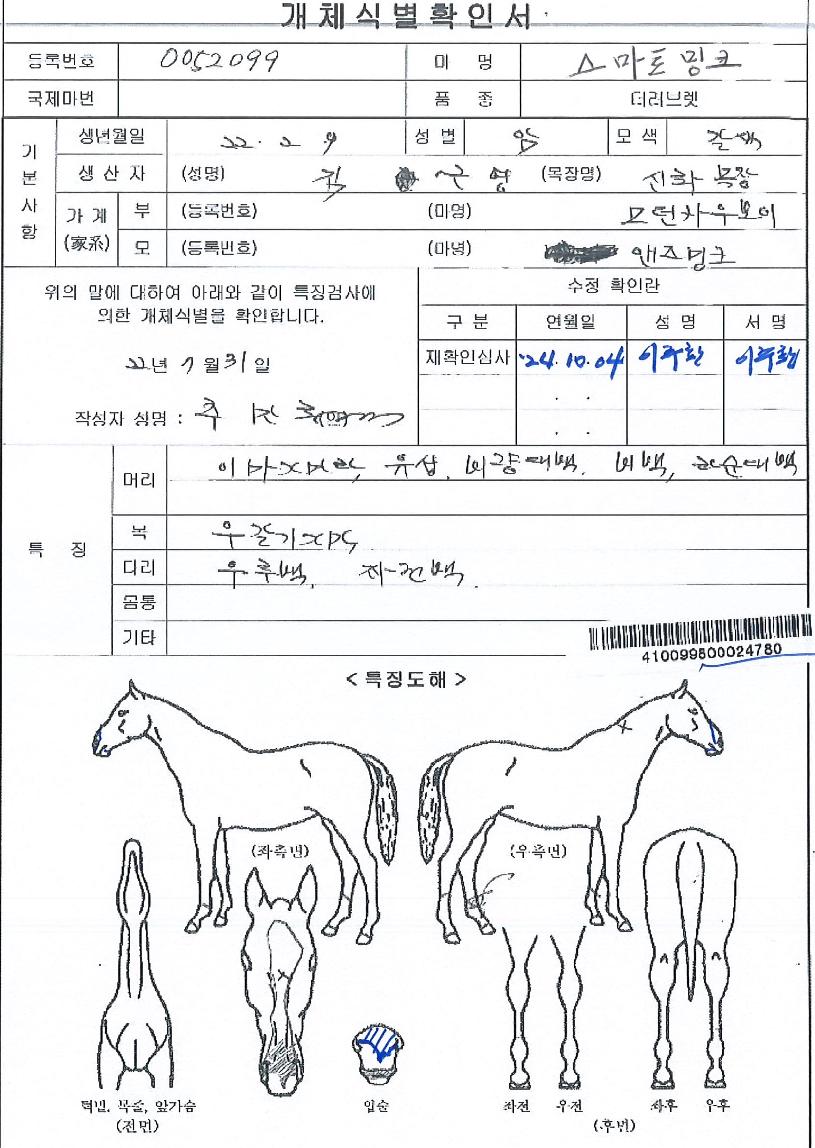 개체식별확인서
등록번호 0052099 마 명 스마트밍크
국제마번 품 종 더러브렛
기본사항
생년월일 22. 2. 9 성 별 암 모 색 갈색
생 산 자 (성명) 근영 (목장명) 신화 목장
가 계 (家系) 부 (등록번호) (마명) 모던카우보이
모 (등록번호) (마명) 앤즈밍크
위의 말에 대하여 아래와 같이 특징검사에
의한 개체식별을 확인합니다.
22년 7월 31일
작성자 성명 :
수정 확인란
구 분 연월일 성 명 서 명
재확인심사 '24. 10. 04
특 징
머리 유성, 비량대백, 비백, 하순대백
목
다리 우후백,
몸통
기타
410099800024780
< 특징도해 >
(좌측면) (우측면)
턱밑, 목줄, 앞가슴 입술 좌전 우전 좌후 우후
(전면) (후면)